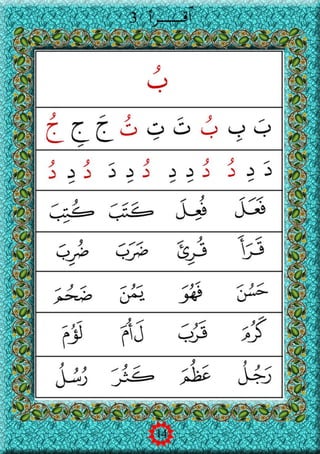 3 اقرأ
بُ
بَ بِ بُ تَ تِ تُ جَ جِ جُ
دَ دِ دُ دُ دِ دِ دُ دِ دَ دُ دِ دُ
فَعَلَ فُعِلَ كَتَبَ كُتِبَ
قَرَأَ قُرِئَ ضَرَبَ ضُرِبَ
حَسُنَ فَهُوَ يَمُنَ ضَحُمَ
كَرُمَ قَرُبَ لَأُمَ لَؤُمَ
رَجُلُ عَظُمَ كَثُرَ رُسُلُ
14